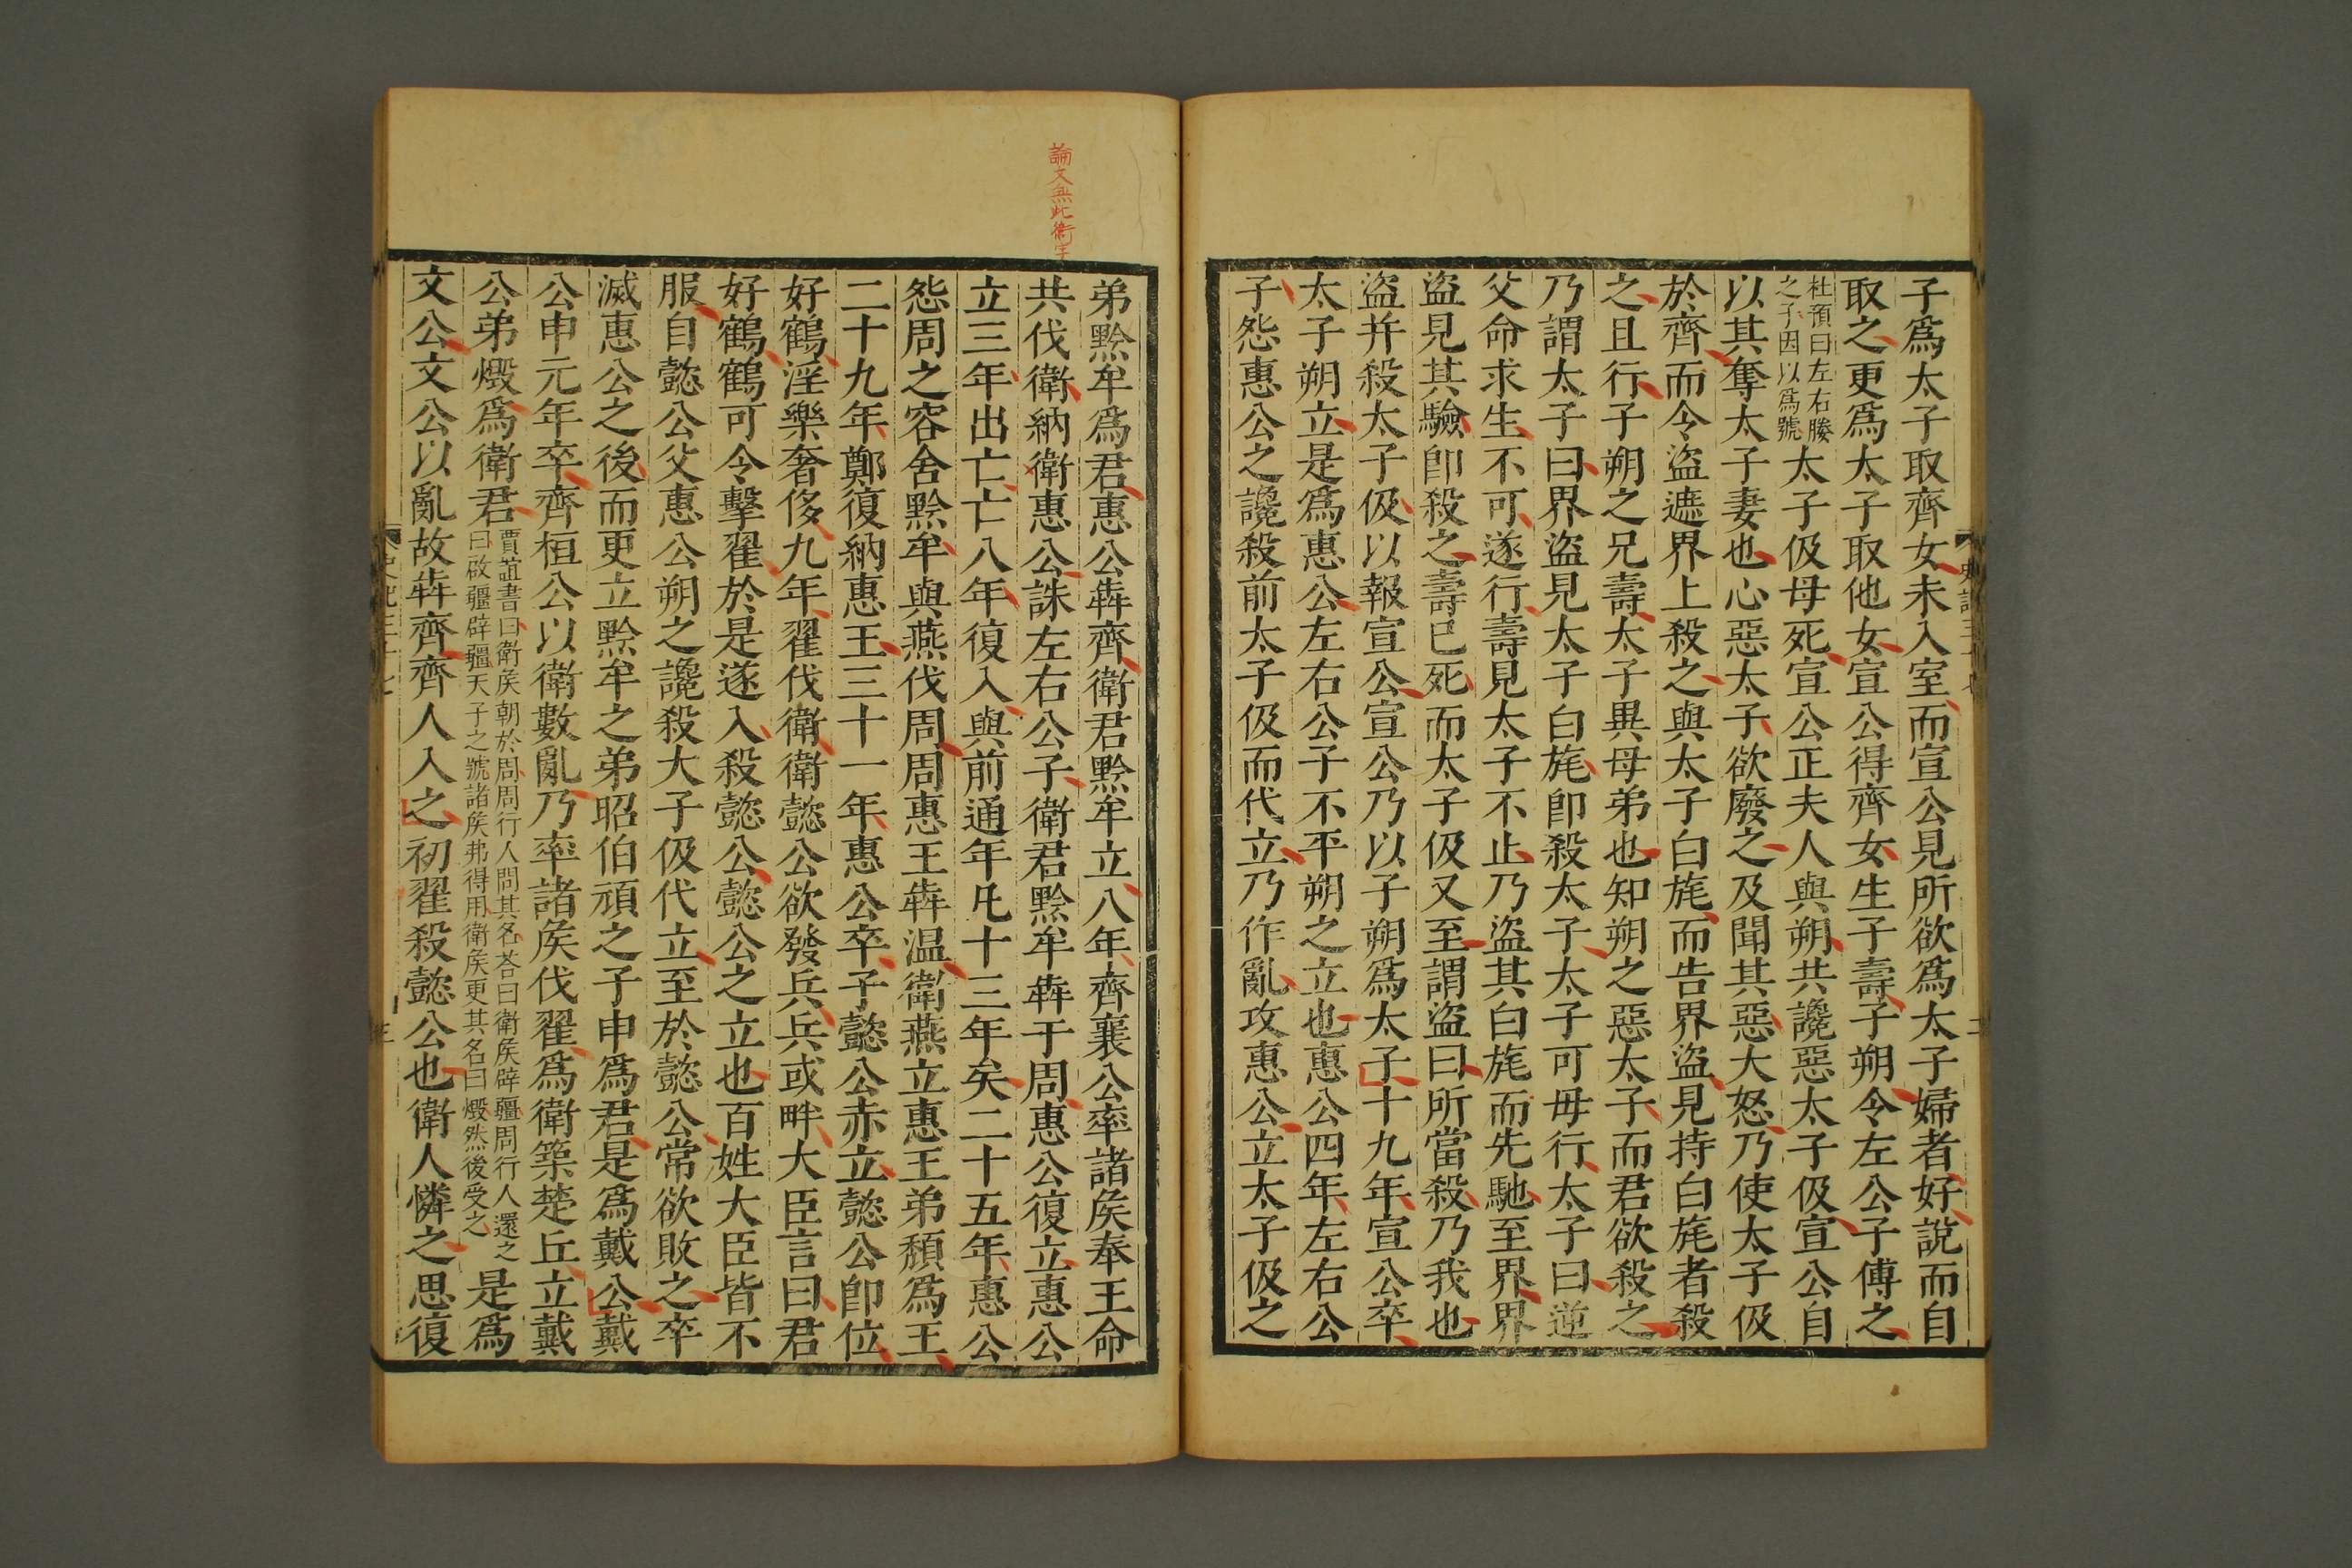 子爲太子取齊女未入室而宣公見所欲爲太子婦者好說而自
取之更爲太子取他女宣公得齊女生子壽子朔令左公子傅之
杜預曰左右媵
之子因以爲號
太子伋母死宣公正夫人與朔共讒惡太子伋宣公自
以其奪太子妻也心惡太子欲廢之及聞其惡大怒乃使太子伋
於齊而令盜遮界上殺之與太子白旄而告界盜見持白旄者殺
之且行子朔之兄壽太子異母弟也知朔之惡太子而君欲殺之
乃謂太子曰界盜見太子白旄卽殺太子太子可毋行太子曰逆
父命求生不可遂行壽見太子不止乃盜其白旄而先馳至界界
盜見其驗卽殺之壽已死而太子伋又至謂盜曰所當殺乃我也
盜并殺太子伋以報宣公宣公乃以子朔爲太子十九年宣公卒
太子朔立是爲惠公左右公子不平朔之立也惠公四年左右公
子怨惠公之讒殺前太子伋而代立乃作亂攻惠公立太子伋之
論文無此衛字
弟黔牟爲君惠公犇齊衛君黔牟立八年齊襄公率諸矦奉王命
共伐衛納衛惠公誅左右公子衛君黔牟犇于周惠公復立惠公
立三年出亡亡八年復入與前通年凡十三年矣二十五年惠公
怨周之容舍黔牟與燕伐周周惠王犇温衛燕立惠王弟頹爲王
二十九年鄭復納惠王三十一年惠公卒子懿公赤立懿公卽位
好鶴淫樂奢侈九年翟伐衛衛懿公欲發兵兵或畔大臣言曰君
好鶴鶴可令擊翟於是遂入殺懿公懿公之立也百姓大臣皆不
服自懿公父惠公朔之讒殺大子伋代立至於懿公常欲敗之卒
滅惠公之後而更立黔牟之弟昭伯頑之子申爲君是爲戴公戴
公申元年卒齊桓公以衛數亂乃率諸矦伐翟爲衛築楚丘立戴
公弟燬爲衛君
賈誼書曰衛矦朝於周周行人問其名荅曰衛矦辟疆周行人還之
曰啟疆辟疆天子之號諸矦弗得用衛矦更其名曰燬然後受之
是爲
文公文公以亂故犇齊齊人入之初翟殺懿公也衛人憐之思復